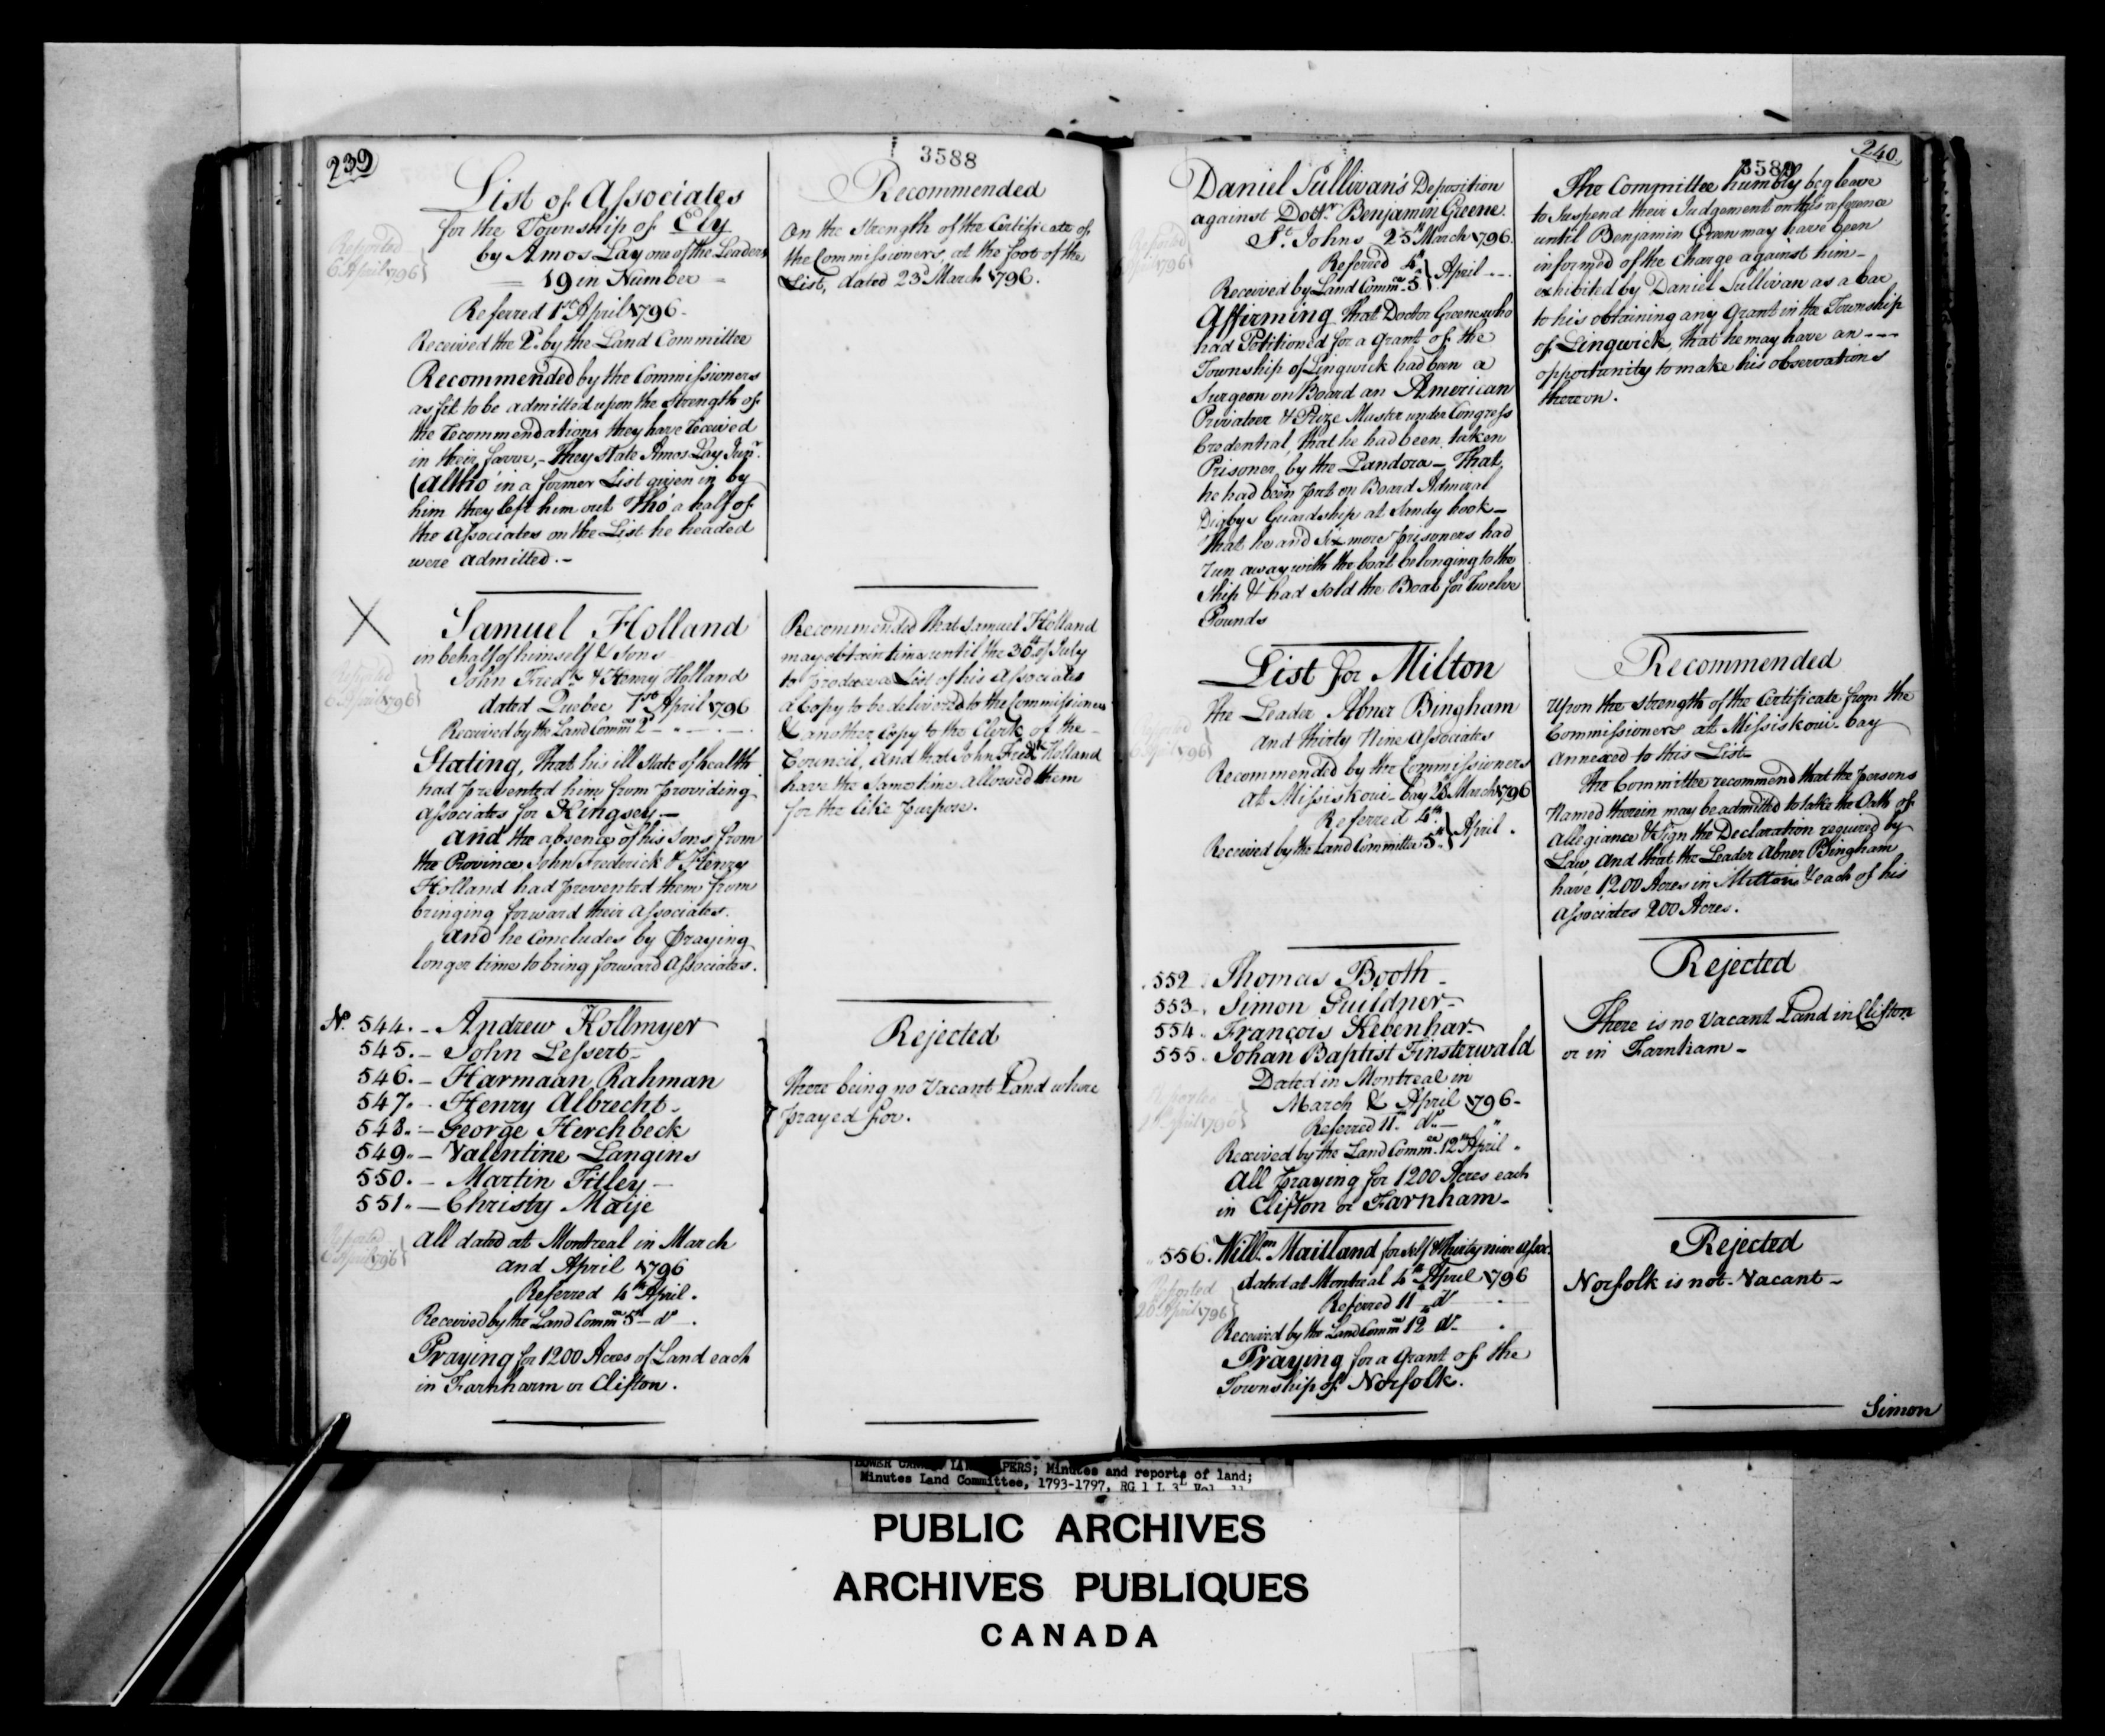 239
3588
List of Associates
for the Township of Ely
by Amos Lay one of the Leaders
19 in Number
Reported
6 April 1796
Referred 1st April 1796 -
Received the 2d. by the Land Committee
Recommended by the Commissioners
as fit to be admitted upon the Strength of
the recommendations they have received
in their favor, - They state Amos Lay Junr.
(altho' in a former List given in by
him they left him out Tho' a half of
the Associates on the List he headed
were admitted. -
Recommended
On the Strength of the Certificate of
the Commissioners, at the foot of the
List, dated 23d March 1796.
X
Samuel Holland
in behalf of himself & Sons
John Fredk. & Henry Holland
dated Quebec 1st April 1796
Received by the Land Commee 2d
Reported
6 April 1796
Stating, That his ill state of health
had prevented him from providing
Associates for Kingsey. -
And the absence of his Sons from
the Province, John Frederick & Henry
Holland had prevented them from
bringing forward their Associates.
And he concludes by praying
longer time to bring forward Associates.
Recommended that Samuel Holland
may obtain time until the 30th of July
to produce a List of his Associates
a Copy to be delivered to the Commissioners
& another Copy to the Clerk of the -
Council, And that John Fredk Holland
have the same time allowed them
for the like purpose.
No. 544. - Andrew Kollmyer
545. - John Lessert -
546. - Harmaan Rahman
547. - Henry Albrecht -
548. - George Herchbeck
549. - Valentine Langins
550. - Martin Titley -
551. - Christy Maije
Reported
6 April 1796
All dated at Montreal in March
and April 1796
Referred 4th April.
Received by the Land Commee 5th do.
Praying for 1200 Acres of Land each
in Farnham or Clifton.
Rejected
There being no Vacant Land where
prayed for.
240
3589
Daniel Sullivan's Deposition
against Doctr. Benjamin Greene.
St. Johns 25th March 1796.
Referred 4th
Received by Land Commee. 5th } April
Reported
April 1796
Affirming That Doctor Greene who
had Petitioned for a Grant of the
Township of Lingwick had been a
Surgeon on Board an American
Privateer & Prize Master under Congress
Credential, that he had been taken
Prisoner, by the Pandora - That
he had been put on Board Admiral
Digbys Guardship at Sandy hook -
That he and Six more prisoners had
run away with the boat belonging to the
Ship & had sold the Boat for Twelve
Pounds
The Committee humbly beg leave
to Suspend their Judgement on this reference
until Benjamin Green may have been
informed of the Charge against him -
exhibited by Daniel Sullivan as a bar
to his obtaining any Grant in the Township
of Lingwick, that he may have an ---
opportunity to make his observations
thereon.
List for Milton
The Leader Abner Bingham
and thirty Nine Associates
Recommended by the Commissioners
at Missiskoui-bay 28 March 1796
Referred 4th
Received by the Land Committee 5th } April.
Reported
6 April 1796
Recommended
Upon the strength of the Certificate from the
Commissioners at Missiskoui-bay
annexed to this List -
The Committee recommend that the persons
Named therein may be admitted to take the Oath of
Allegiance & Sign the Declaration required by
Law, And that the Leader Abner Bingham
have 1200 Acres in Milton & each of his
Associates 200 Acres.
552. Thomas Booth -
553. Simon Guildner -
554. François Hebenhar -
555. Johan Baptist Finsterwald
Dated in Montreal in
March & April 1796 -
Referred 11th do. -
Received by the Land Commee. 12th April
Reported
April 1796
All praying for 1200 Acres each
in Clifton or Farnham -
Rejected
There is no vacant Land in Clifton
or in Farnham -
556. Willm. Maitland for self & thirty nine Assoc.
dated at Montreal 4th April 1796
Referred 11th do
Received by the Land Commee 12 do.
Reported
20 April 1796
Praying for a Grant of the
Township of Norfolk.
Rejected
Norfolk is not Vacant -
Simon
Minutes and reports of land;
Minutes Land Committee, 1793-1797, RG 1 L 3L Vol.
PUBLIC ARCHIVES
ARCHIVES PUBLIQUES
CANADA